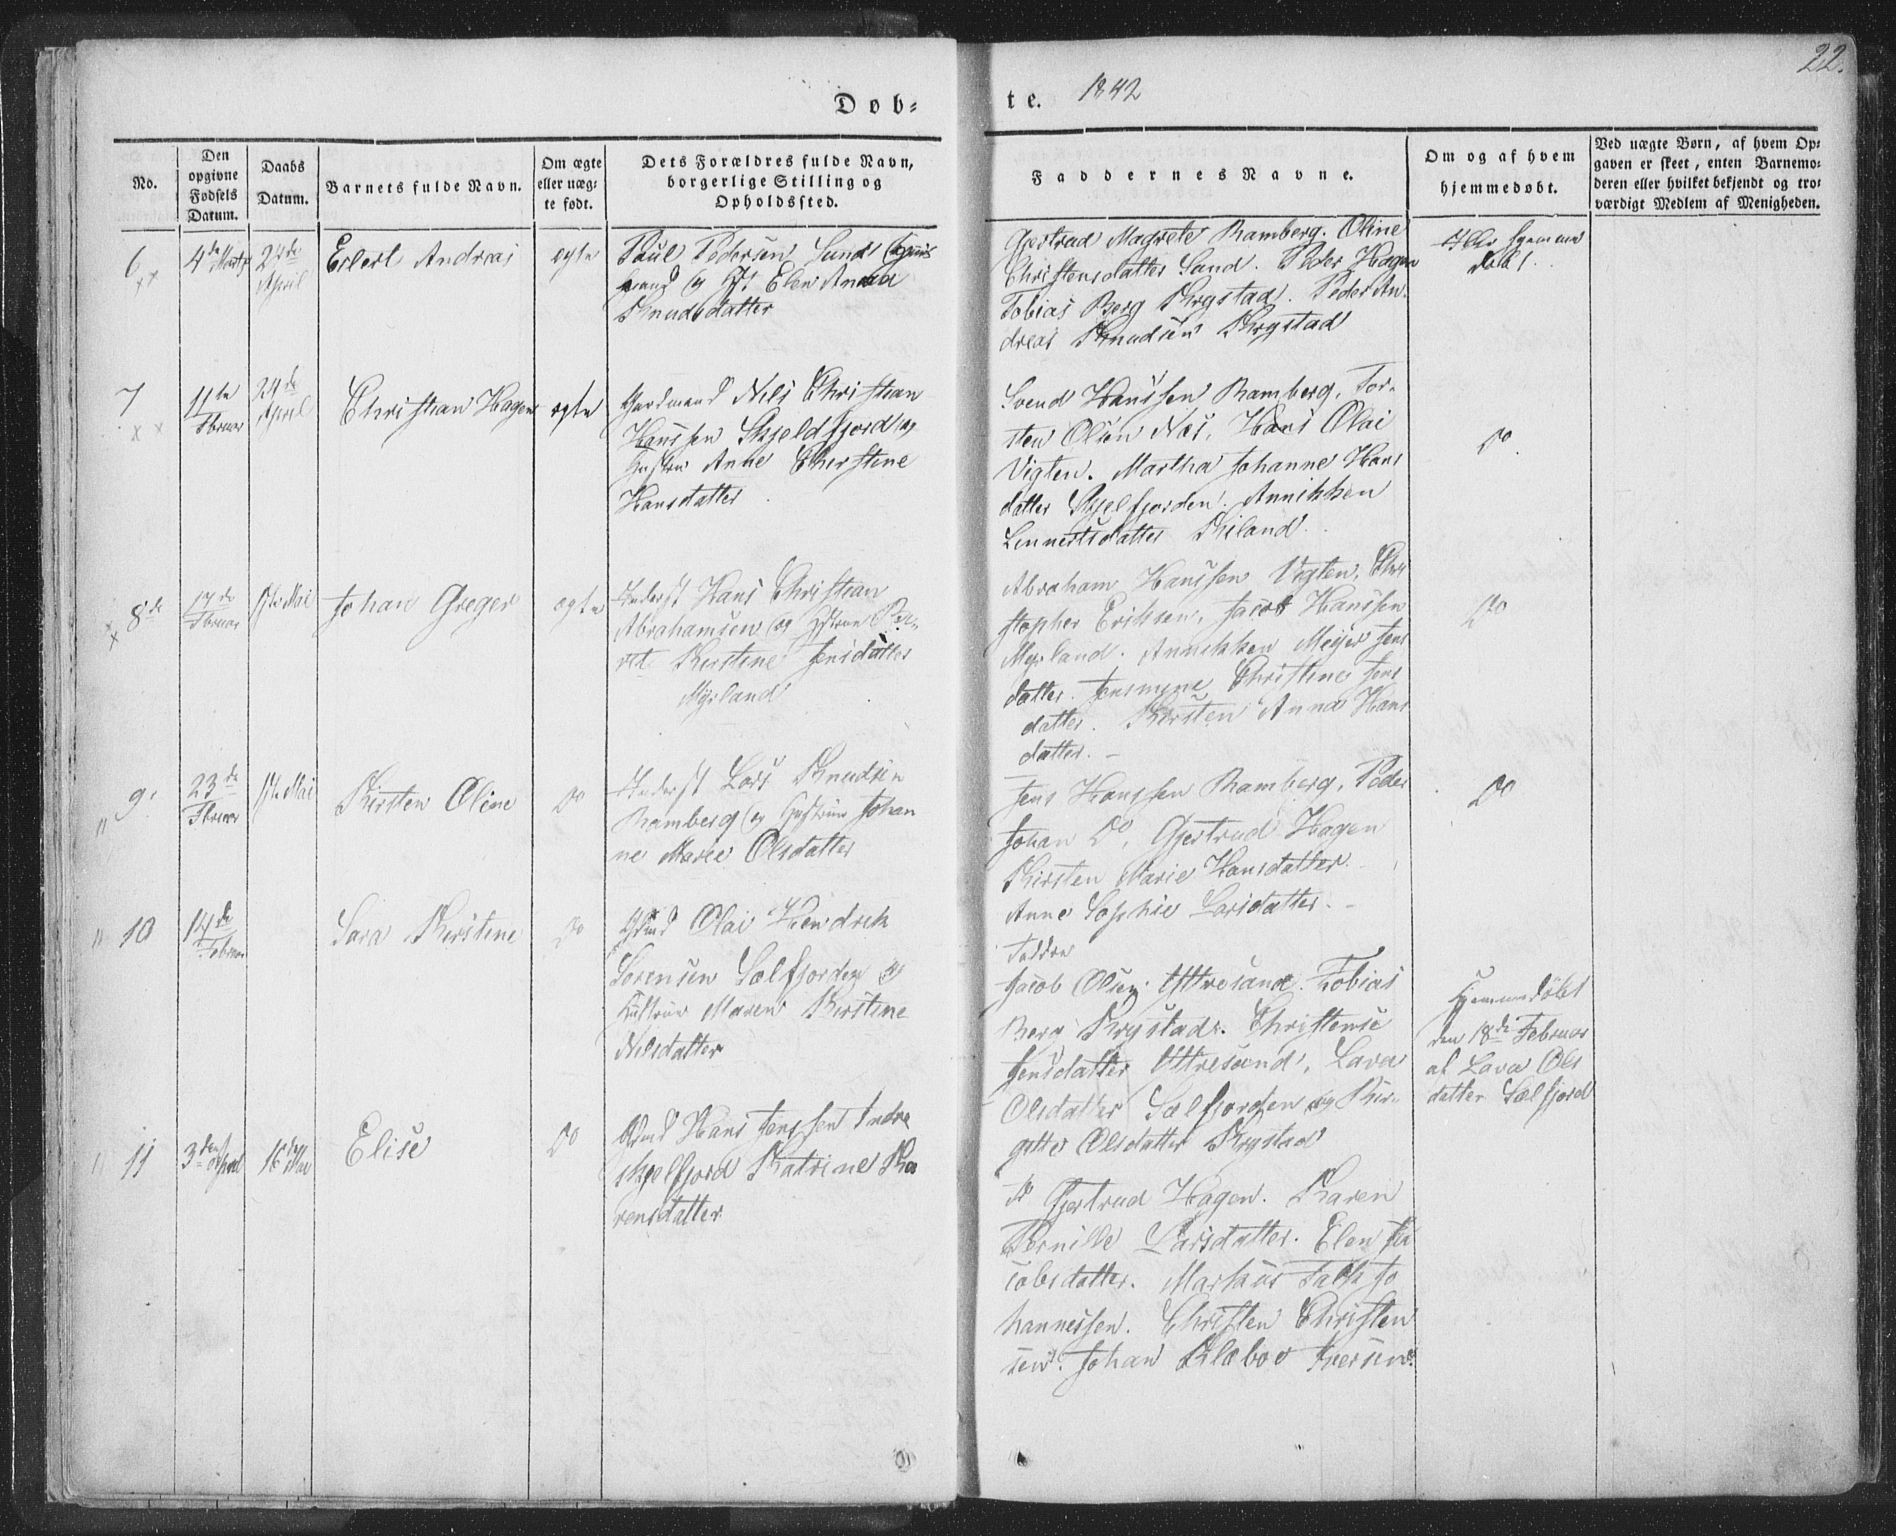 22.
Døb-
te. 1842
No.
Den opgivne Fødsels Datum.
Daabs Datum.
Barnets fulde Navn.
Om ægte eller uæg- te født.
Dets Forældres fulde Navn, borgerlige Stilling og Opholdssted.
Faddernes Navne.
Om og af hvem hjemmedøbt.
Ved uægte Børn, af hvem Op- gaven er skeet, enten Barnemo- deren eller hvilket bekjendt og tro- værdigt Medlem af Menigheden.
6
4de Marts
24de April
Eilert Andreas
ægte
Paul Pedersen Sund
og Elen Anna
Knudsdatter
Gjertrud Magrete Ramberg. Oline
Christensdatter Sand. Peder Hagen
Tobias Berg Krystad. Peder An-
dreas Knudsen Krystad
Ikke hjemme
døbt.
7
11te Febuar
24de April
Christian Hagen
ægte
Gaardmand Nils Christian
Hanssen Skjeldfjord og
Hustru Anne Chirstine
Hansdatter
Svend Hanssen Ramberg, Tor-
sten Olsen Næs, Hans Olai
Vigten. Martha Johanne Hans
datter Skjelfjorden. Annikken
Lennertsdatter Kiland.
Do
8de
17de Febuar
1ste Mai
Johan Greger
ægte
Inderst Hans Christian
Abrahamsen og Hustrue Be-
ret Kirstine Jensdatter
Myrland
Abraham Hanssen Vigten, Chri
stopher Eriksen, Jacob Hanssen
Myrland. Annikken Meyer Jens
datter. Jensmine Christine Jens
datter. Kirsten Anna Hans
datter.
Do
9
23de Febuar
1ste Mai
Kirsten Oline
Do
Inderst Lars Knudsen
Ramberg og Hustrue Johan
ne Marie Olsdatter
Jens Hanssen Ramberg, Peder
Johan Do, Gjertrud Hagen
Kirsten Marie Hansdatter.
Anne Sophie Larsdatter.
Do
10
14de Febuar
Sara Kirstine
Do
Olai Hendrik
Sørensen Sælfjorden og
Hustrue Maren Kirstine
Nilsdatter
Faddre
Jacob Olsen Yttresand. Tobias
Berg Krystad. Christense
Jensdatter Yttresand, Lava
Olsdatter Sælfjorden og Bir-
gitte Olsdatter Krystad
Hjemmedøbt
den 18de Februar
af Lava Ols
datter Sælfjord
11
3den April
16de Mai
Elise
Do
Hans Jenssen Indre
skjelfjord Katrine Ka
rensdatter
Gjertrud Hagen. Karen
Pernille Larsdatter. Elen Ja
cobsdatter. Markus Falk Jo
hannessen. Christen Christen
sen. Johan Klæboe Iversen.